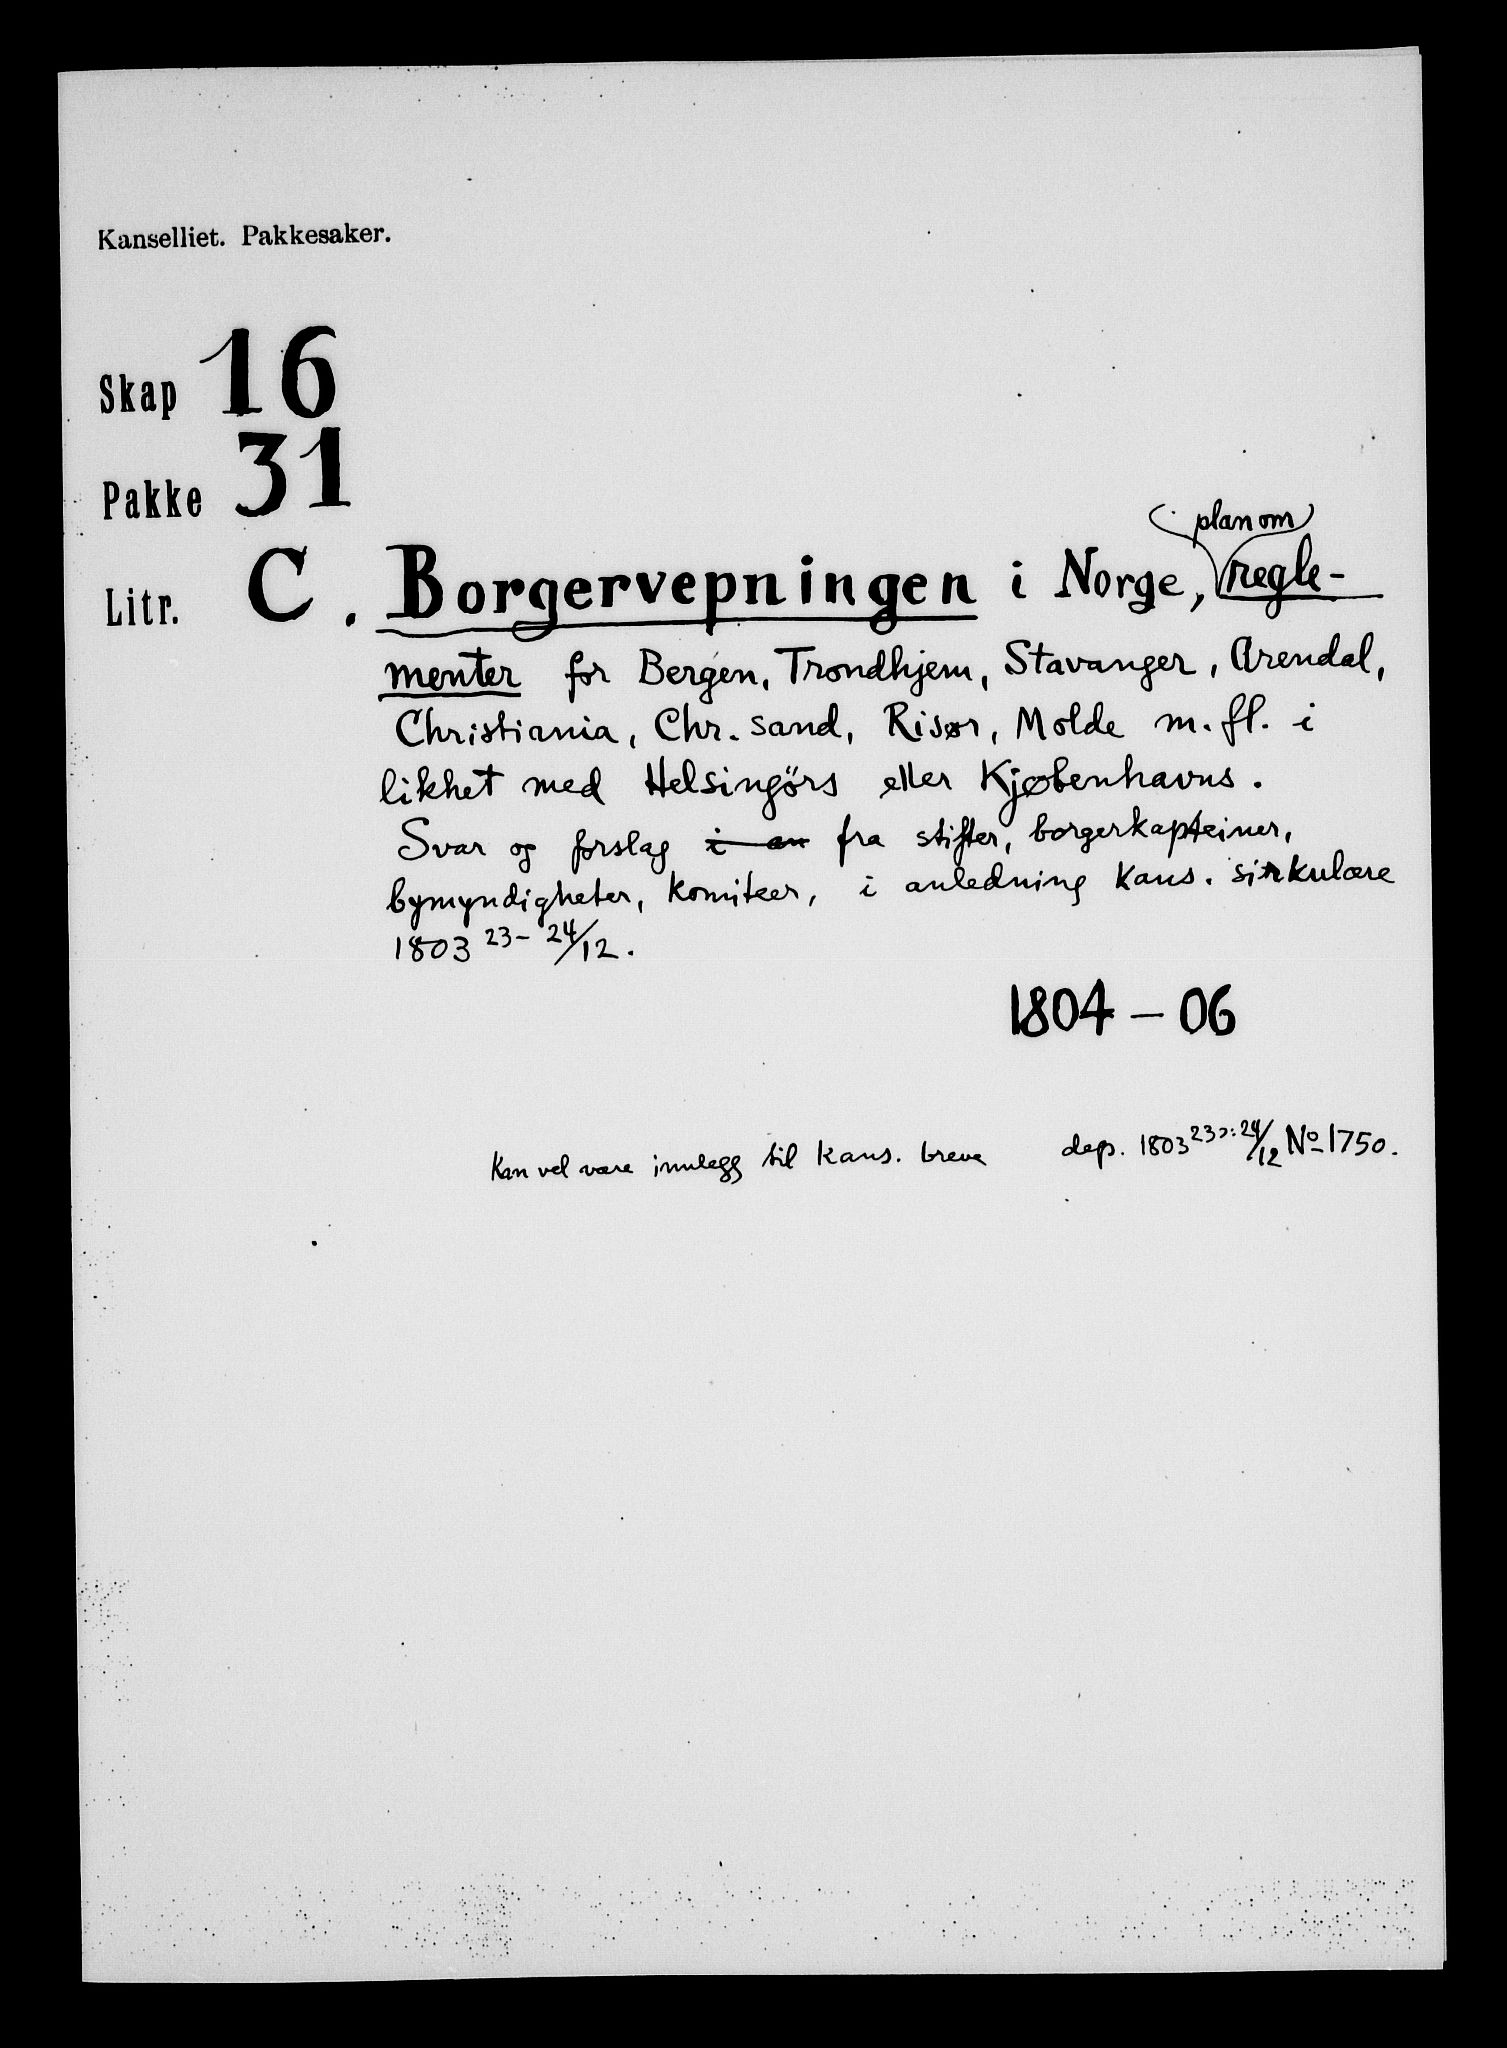 Kanselliet. Pakkesaker.
Skap 16
Pakke 31
(planom)
Litr. C. Borgervepningen i Norge, regle-
menter for Bergen, Trondhjem, Stavanger, Arendal,
Christiania, Chr. sand, Risør, Molde m. fl. i
likhet med Helsingörs eller Kjøbenhavns.
Svar og forslag i an fra stifter, borgerkapteiner,
bymyndigheter, komiteer, i anledning Kans. sirkulære
1803 23- 24/12.
1804 - 06
Kan vel være innlegg til kans. breve dep. 1803 23ɔ: 24/12 No 1750.